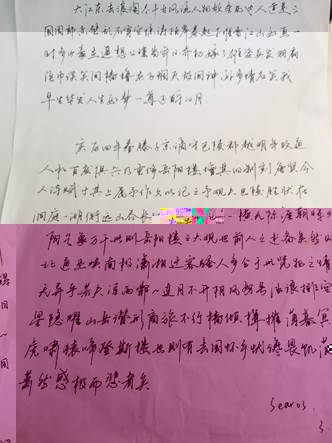 大江东去浪淘尽千古风流人物故垒西边人道是三
国周郎赤壁乱石穿空惊涛拍岸卷起千堆雪江山如画一
时多少豪杰遥想公瑾当年小乔初嫁了雄姿英发羽扇
纶巾谈笑间樯橹灰飞烟灭故国神游多情应笑我
早生华发人生如梦一尊还酹江月
庆历四年春滕子京谪守巴陵郡越明年政通
人和百废俱兴乃重修岳阳楼增其旧制刻唐贤今
人诗赋于其上属予作文以记之予观夫巴陵胜状在
洞庭一湖衔远山吞长 横无际涯朝晖夕
阴气象万千此则岳阳楼之大观也前人之述备矣然则
北通巫峡南极潇湘迁客骚人多会于此览物之情
无异乎若夫淫雨霏~连月不开阴风怒号浊浪排空
星隐曜山岳潜形商旅不行樯倾楫摧薄暮冥
虎啸猿啼登斯楼也则有去国怀乡忧谗畏讥满
萧然感极而悲者矣
Searos.